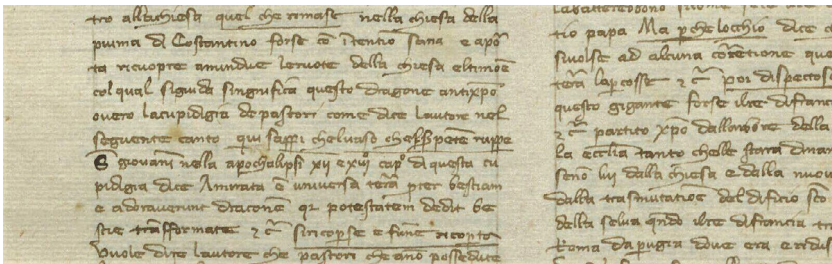 tro alla chiesa quel che romase nella chiesa della
piuma di Costantino forse cō ītentiō sana e apō
ta ricuopre amindue le ruote della chiesa el timōe
col qual si guida singnifica questo dragone antixpō
overo la cupidigia de pastori come dice lautore nel
seguente canto qui sappi chel vaso chel sṗpēte ruppe
S giovani nella apochalipsi xij e xiij capº di questa cu
pidigia dice Amirata ē universa terra prer bestiam
e adoraverunt draconē qr potestatem dedit be
stie trāsformate ⁊ c̄ si ricoperse e fune ricoperta
Vuole dire lautore che pastori che anō possedute
tio papa Ma perche locchio dice
sivolse ad alcuna corretione
terā la percosse ⁊ c̄ poi di spectoso
questo gigante forse il re di francia
⁊ c̄ partito xpō dallamore della
la ecclia tanto chelle stara dinan
seno lui dalla chiesa e dalla nuov
dalla trasmutatiōe del dificio sco
della selva qndo il re di francia
Roma da perugia dove era e ridus